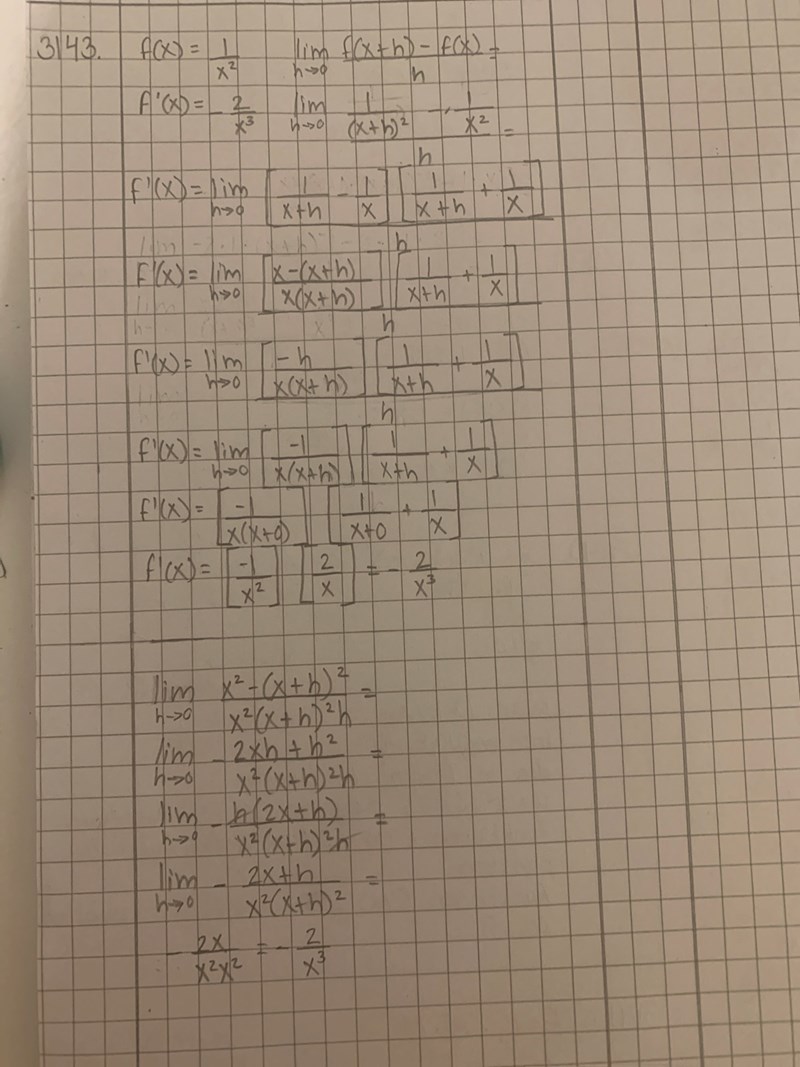 3143. f(x) = 1/x² lim h→0 f(x+h) - f(x)/h =
f'(x) = -2/x³ lim h→0 (1/(x+h)² - 1/x²)/h =
f'(x) = lim h→0 [1/(x+h) - 1/x] [1/(x+h) + 1/x]/h
f'(x) = lim h→0 [(x-(x+h))/(x(x+h))] [1/(x+h) + 1/x]/h
f'(x) = lim h→0 [-h/(x(x+h))] [1/(x+h) + 1/x]/h
f'(x) = lim h→0 [-1/(x(x+h))] [1/(x+h) + 1/x]
f'(x) = [-1/(x(x+0))] [1/(x+0) + 1/x]
f'(x) = [-1/x²] [2/x] = -2/x³
lim h→0 (x²-(x+h)²)/(x²(x+h)²h) =
lim h→0 -(2xh+h²)/(x²(x+h)²h) =
lim h→0 -h(2x+h)/(x²(x+h)²h) =
lim h→0 -(2x+h)/(x²(x+h)²) =
-2x/(x²x²) = -2/x³